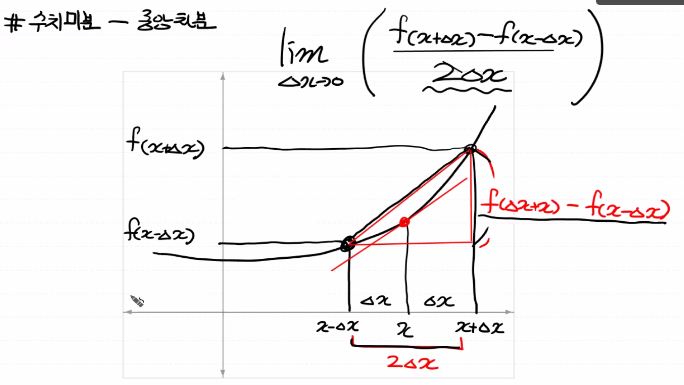 # 수치미분 – 중앙차분
lim Δx→0 ( f(x+Δx)-f(x-Δx) / 2Δx )
f(x+Δx)
f(Δx+x) - f(x-Δx)
f(x-Δx)
Δx Δx
x-Δx x x+Δx
2Δx